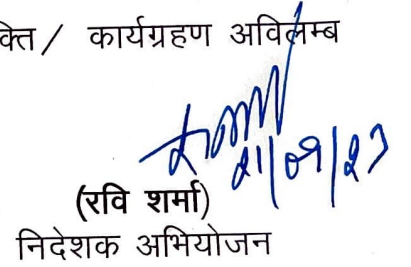 क्ति / कार्यग्रहण अविलम्ब
21/09/23
(रवि शर्मा)
निदेशक अभियोजन